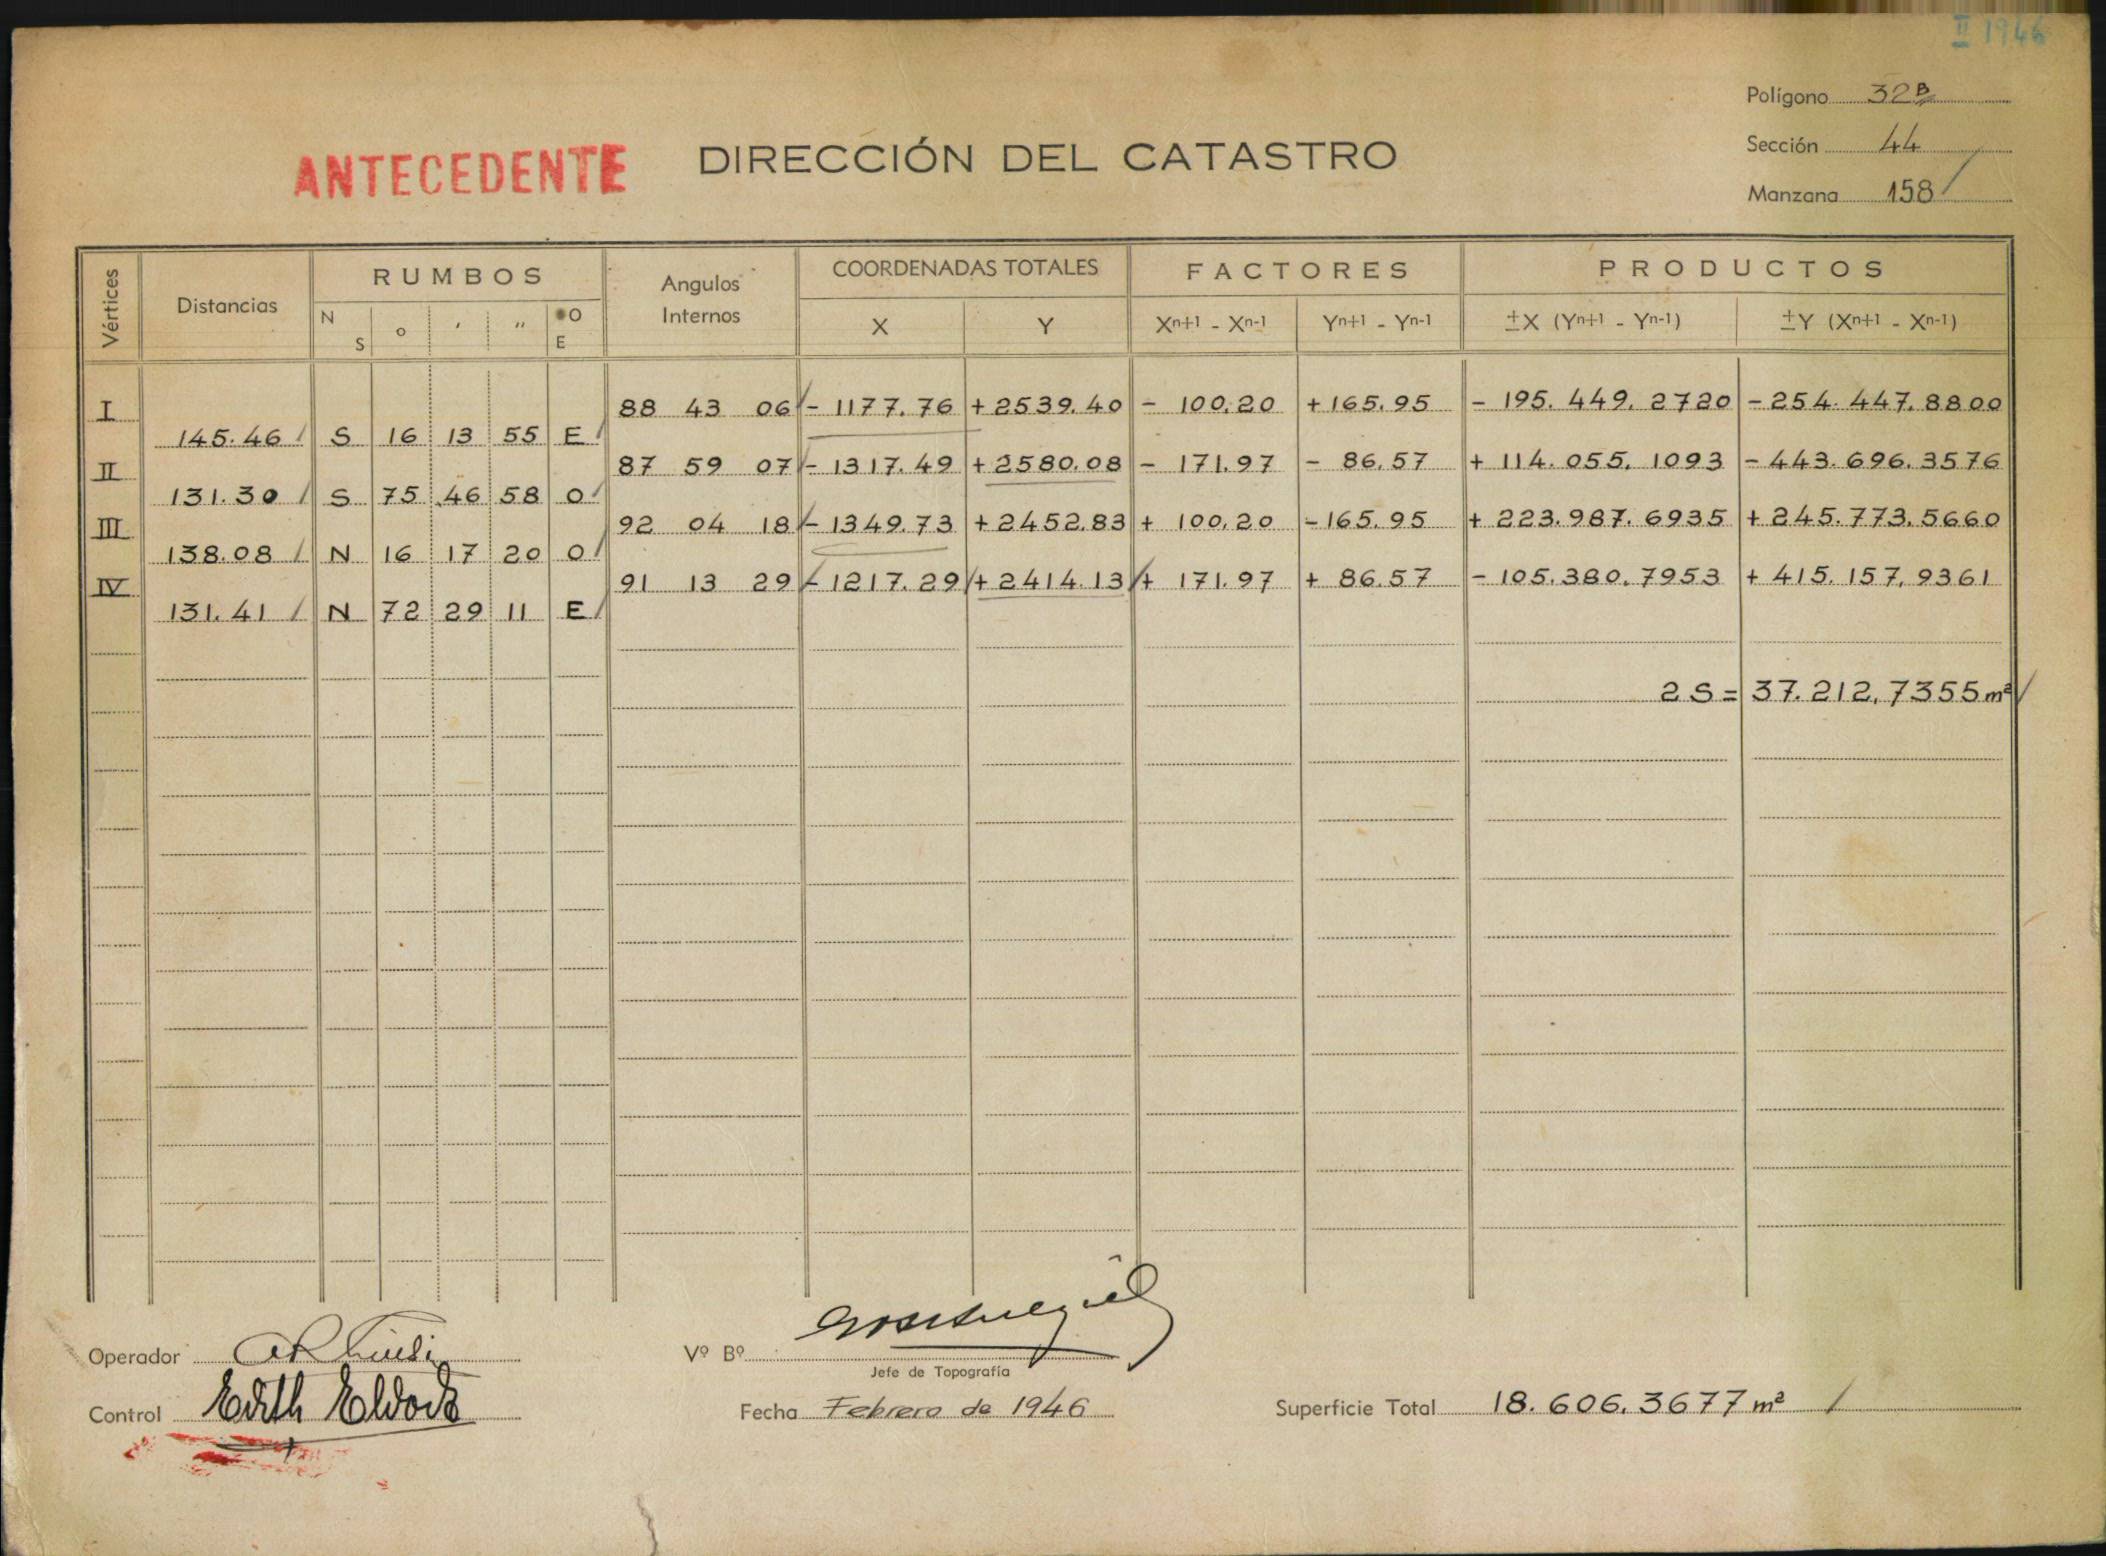 II 1946
Polígono 32B
Sección 44
Manzana 158
ANTECEDENTE DIRECCIÓN DEL CATASTRO
Vértices Distancias RUMBOS Angulos Internos COORDENADAS TOTALES FACTORES PRODUCTOS
N S o ' " O E X Y Xn+1 - Xn-1 Yn+1 - Yn-1 ±X (Yn+1 - Yn-1) ±Y (Xn+1 - Xn-1)
I 88 43 06 - 1177.76 + 2539.40 - 100,20 + 165.95 - 195.449.2720 - 254.447.8800
145.46 S 16 13 55 E
II 87 59 07 - 1317.49 + 2580.08 - 171.97 - 86.57 + 114.055.1093 - 443.696.3576
131.30 S 75 46 58 O
III 92 04 18 - 1349.73 + 2452.83 + 100,20 - 165.95 + 223.987.6935 + 245.773.5660
138.08 N 16 17 20 O
IV 91 13 29 - 1217.29 + 2414.13 + 171.97 + 86.57 - 105.380.7953 + 415.157,9361
131.41 N 72 29 11 E
2 S = 37.212,7355 m²
Operador
Vº Bº
Jefe de Topografía
Control Edith
Fecha Febrero de 1946
Superficie Total 18.606.3677 m²